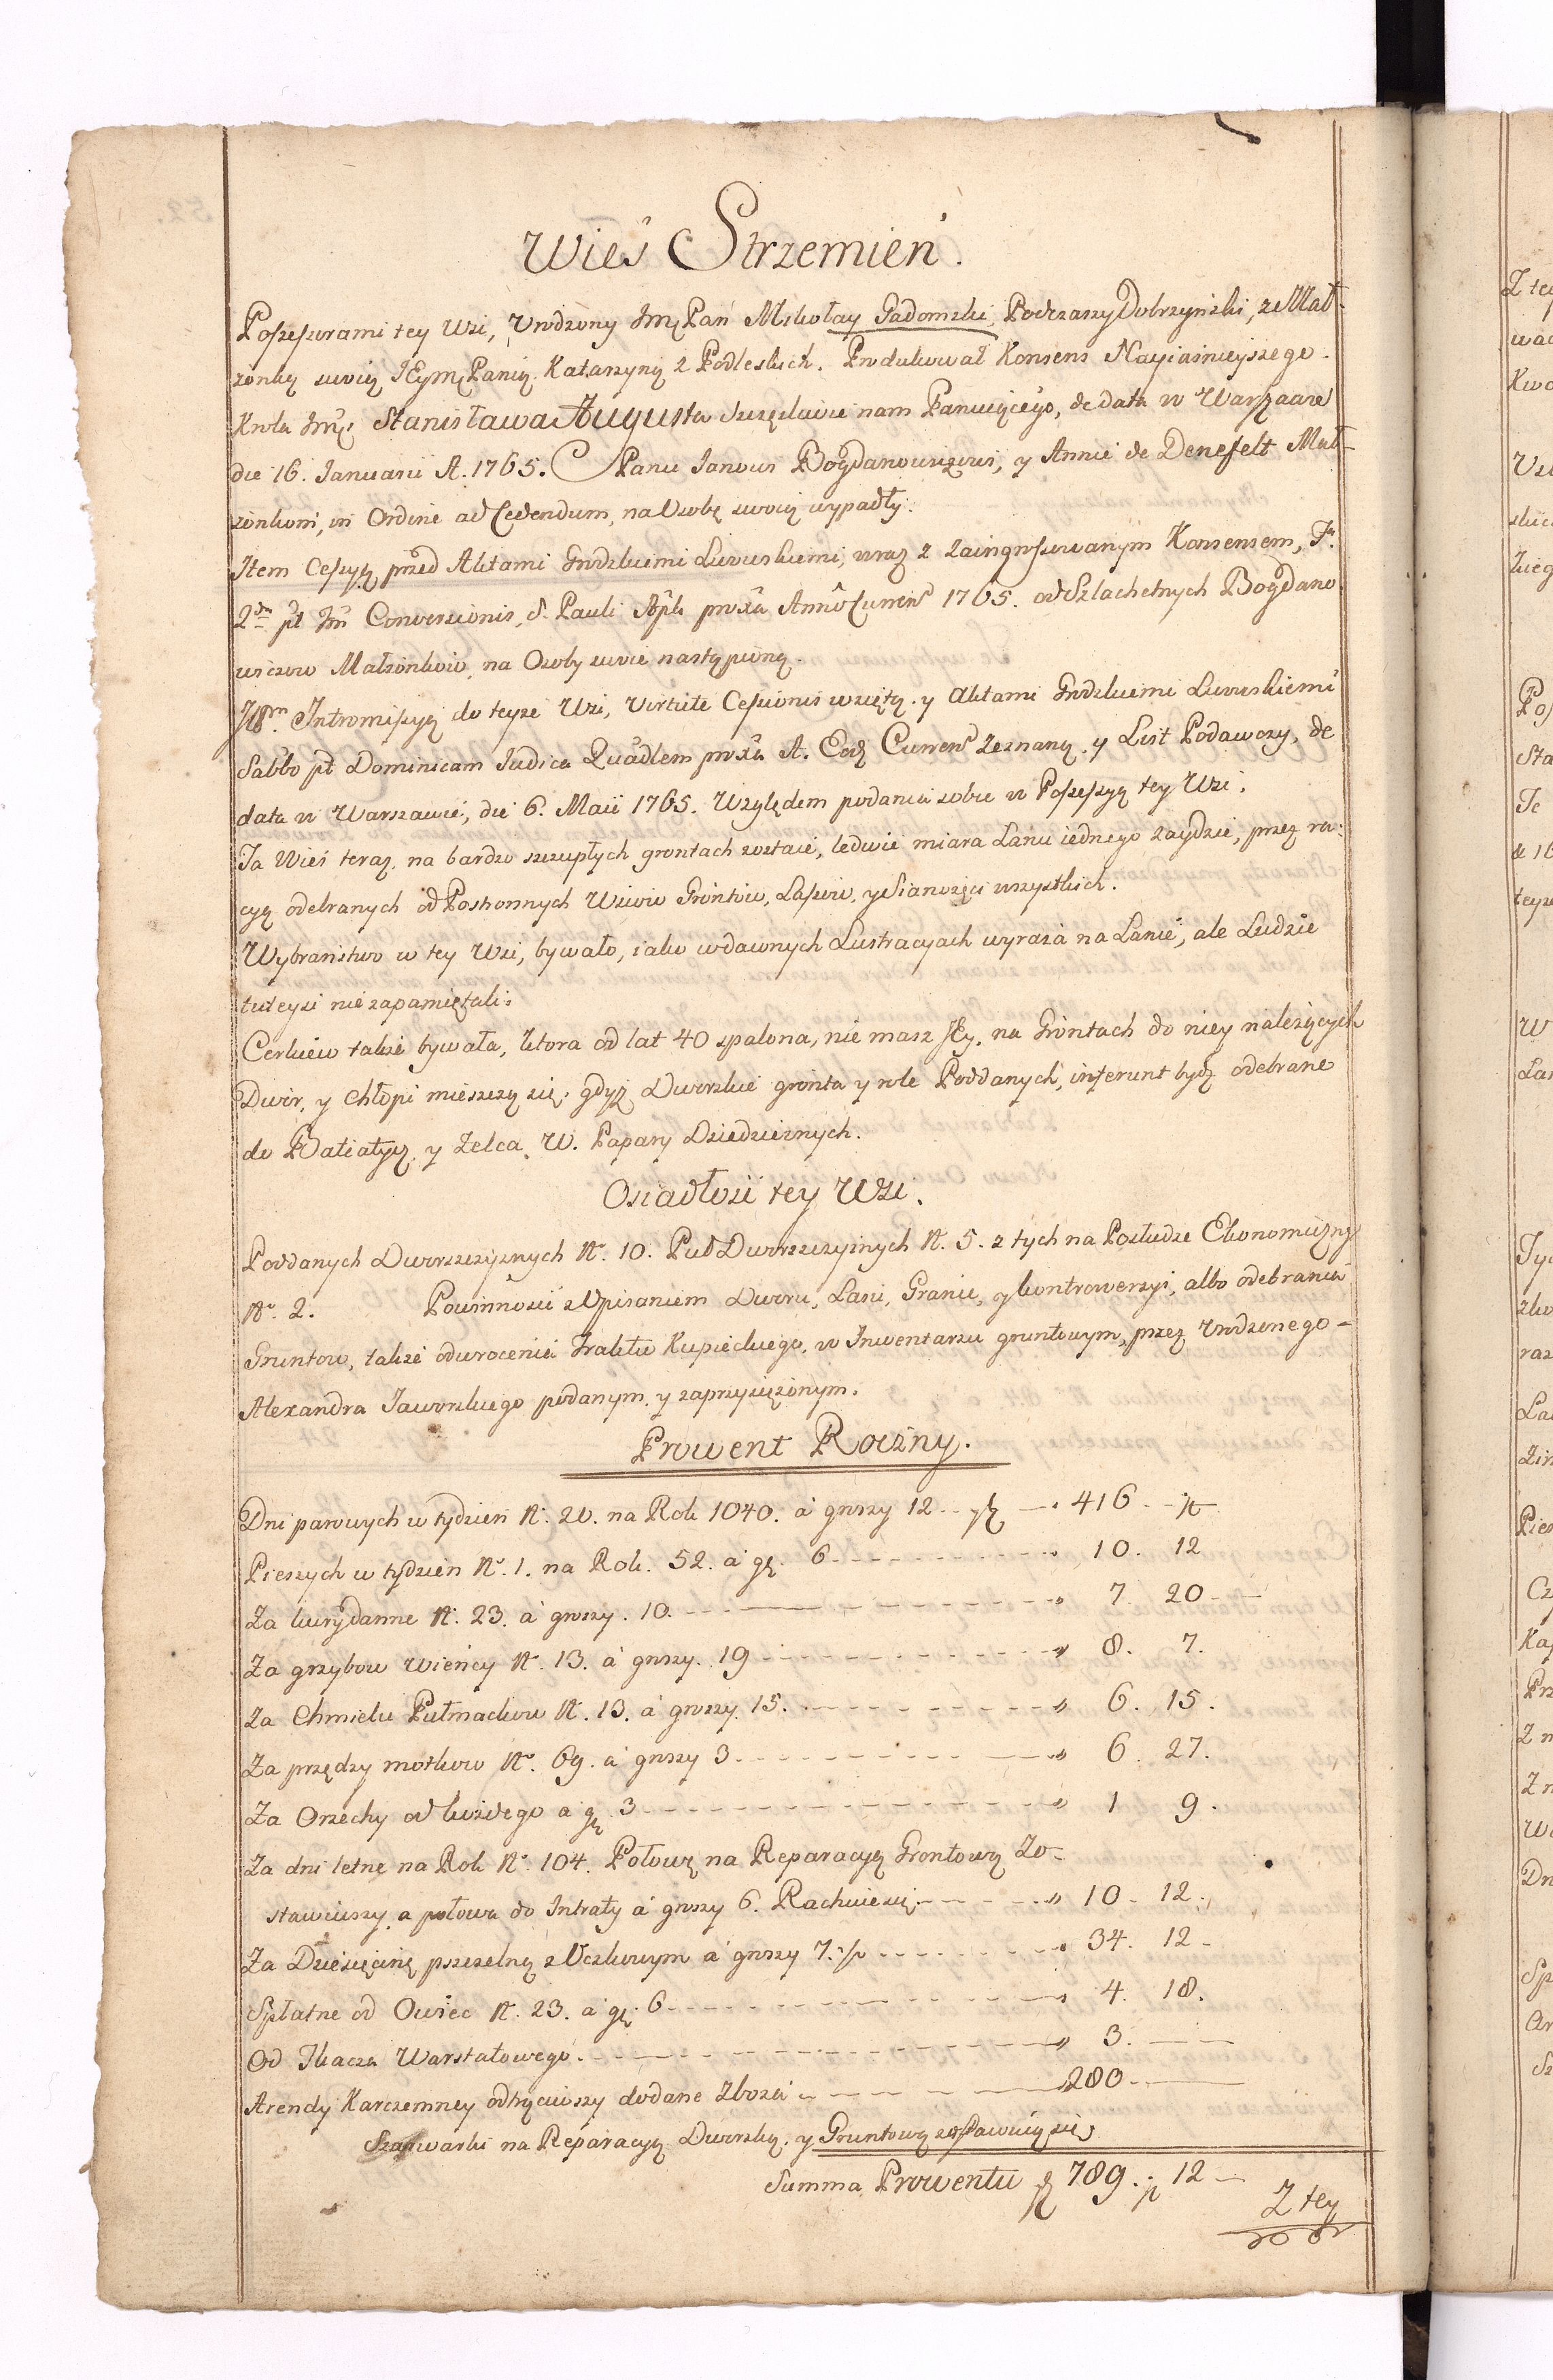 Wieś Strzemień.
Possessorami tey Wsi, Urodzony Jmć Pan Mikołay Gadomski, Podczaszy Dobrzyński, z Mał-
żonką swoią JEymć Panią Katarzyną z Podleskich. Produkował Konsens Nayiaśnieyszego
Krola Jmći Stanisława Augusta szczęśliwie nam Panuiącego, de data w Warszawie
die 16. Januarii A. 1765. Panu Janowi Bogdanowiczowi, y Annie de Denefelt Mał-
żonkom, in Ordine ad Cedendum, na Osobę swoią wypadły.
Item Cessyą przed Aktami Grodzkiemi Lwowskiemi, wraz z zaingrossowanym Konsensem, Fr.
2da pt Im Conversionis S. Pauli Apli proxa Anno Curren 1765. od Szlachetnych Bogdano
wiczow Małżonkow, na Osoby swoie nastąpioną.
Item Intromissyą do teyże Wsi, Virtute Cessionis wziętą, y Aktami Grodzkiemi Lwowskiemi
Sabbo pt Dominicam Judica Quadlem proxa A. Eod Curren zeznaną, y List Podawczy, de
data w Warszawie, die 6. Maii 1765. Względem podania sobie w Possessyą tey Wsi.
Ta Wieś teraz na bardzo szczupłych grontach zostaie, ledwie miara Łanu iednego zaydzie, przez ra:
cyą odebranych od Postronnych Wsiow Grontow, Lasow, y Sianożęci wszystkich.
Wybraństwo w tey Wsi, bywało, iako w dawnych Lustracyach wyraża na Łanie, ale Ludzie
tuteysi nie zapamiętali:
Cerkiew także bywała, ktora od lat 40 spalona, nie masz Jey, na Grontach do niey należących
Dwor, y Chłopi mieszczą się, gdyż Dworskie gronta y role Poddanych, inferunt bydź odebrane
do Batiatycz y Żelca W. Papary Dziedzicznych.
Osiadłość tey Wsi.
Poddanych Dworszczyznych No. 10. Puł Dworszczyznych No. 5. z tych na Posłudze Ekonomiczney
No. 2. Powinności z Opisaniem Dworu, Łasu, Granic, y kontrowersyi, albo odebrania
Gruntow, także odwrocenia Traktu Kupieckiego, w Inwentarzu gruntowym, przez Urodzonego-
Alexandra Jaworskiego podanym, y zaprzysiężonym.
Prowent Roczny.
Dni parowych w tydzień No. 20. na Rok 1040. á groszy 12 - - zł - 416 - -
Pieszych w tydzień No. 1. na Rok. 52. á gr. 6 - - - 10. 12
Za kurydanne No. 23. á groszy. 10. - - - 7. 20 - -
Za grzybow wieńcy No. 13. á groszy. 19 - - - 8. 7.
Za Chmielu Pułmackow No. 13. á groszy. 15. - - - 6. 15.
Za przędzy motkow No. 69. á groszy 3 - - - 6. 27.
Za Orzechy od każdego á gr. 3 - - - 1 9.
Za dni letne na Rok No. 104. Połowę na Reparacyą Grontową Zo-
stawiwszy, a połowa do Intraty á groszy 6. Rachuie się - - - 10 - 12.
Za Dziesięcinę pszczelną z Oczkowym á groszy 7. - - - 34. 12 -
Spłatne od Owiec No. 23. á gr. 6 - - - 4. 18.
Od Tkacza Warstatowego. - - - 3. - -
Arendy Karczemney odtrąciwszy dodane Zboża - - - 280 - -
Szarwarki na Reparacyą Dworską, y Gruntową zostawuią się
Summa Prowentu zł 789. gr 12 -
Z tey